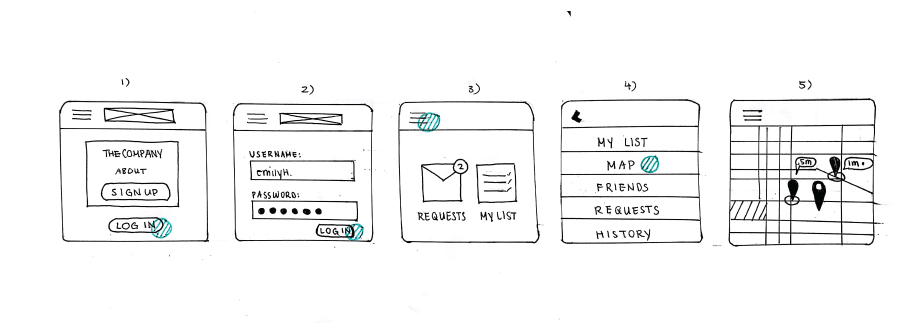 1)
THE COMPANY
ABOUT
SIGN UP
LOG IN
2)
USERNAME:
emilyH.
PASSWORD:
LOG IN
3)
2
REQUESTS
MY LIST
4)
MY LIST
MAP
FRIENDS
REQUESTS
HISTORY
5)
.5m
1m.